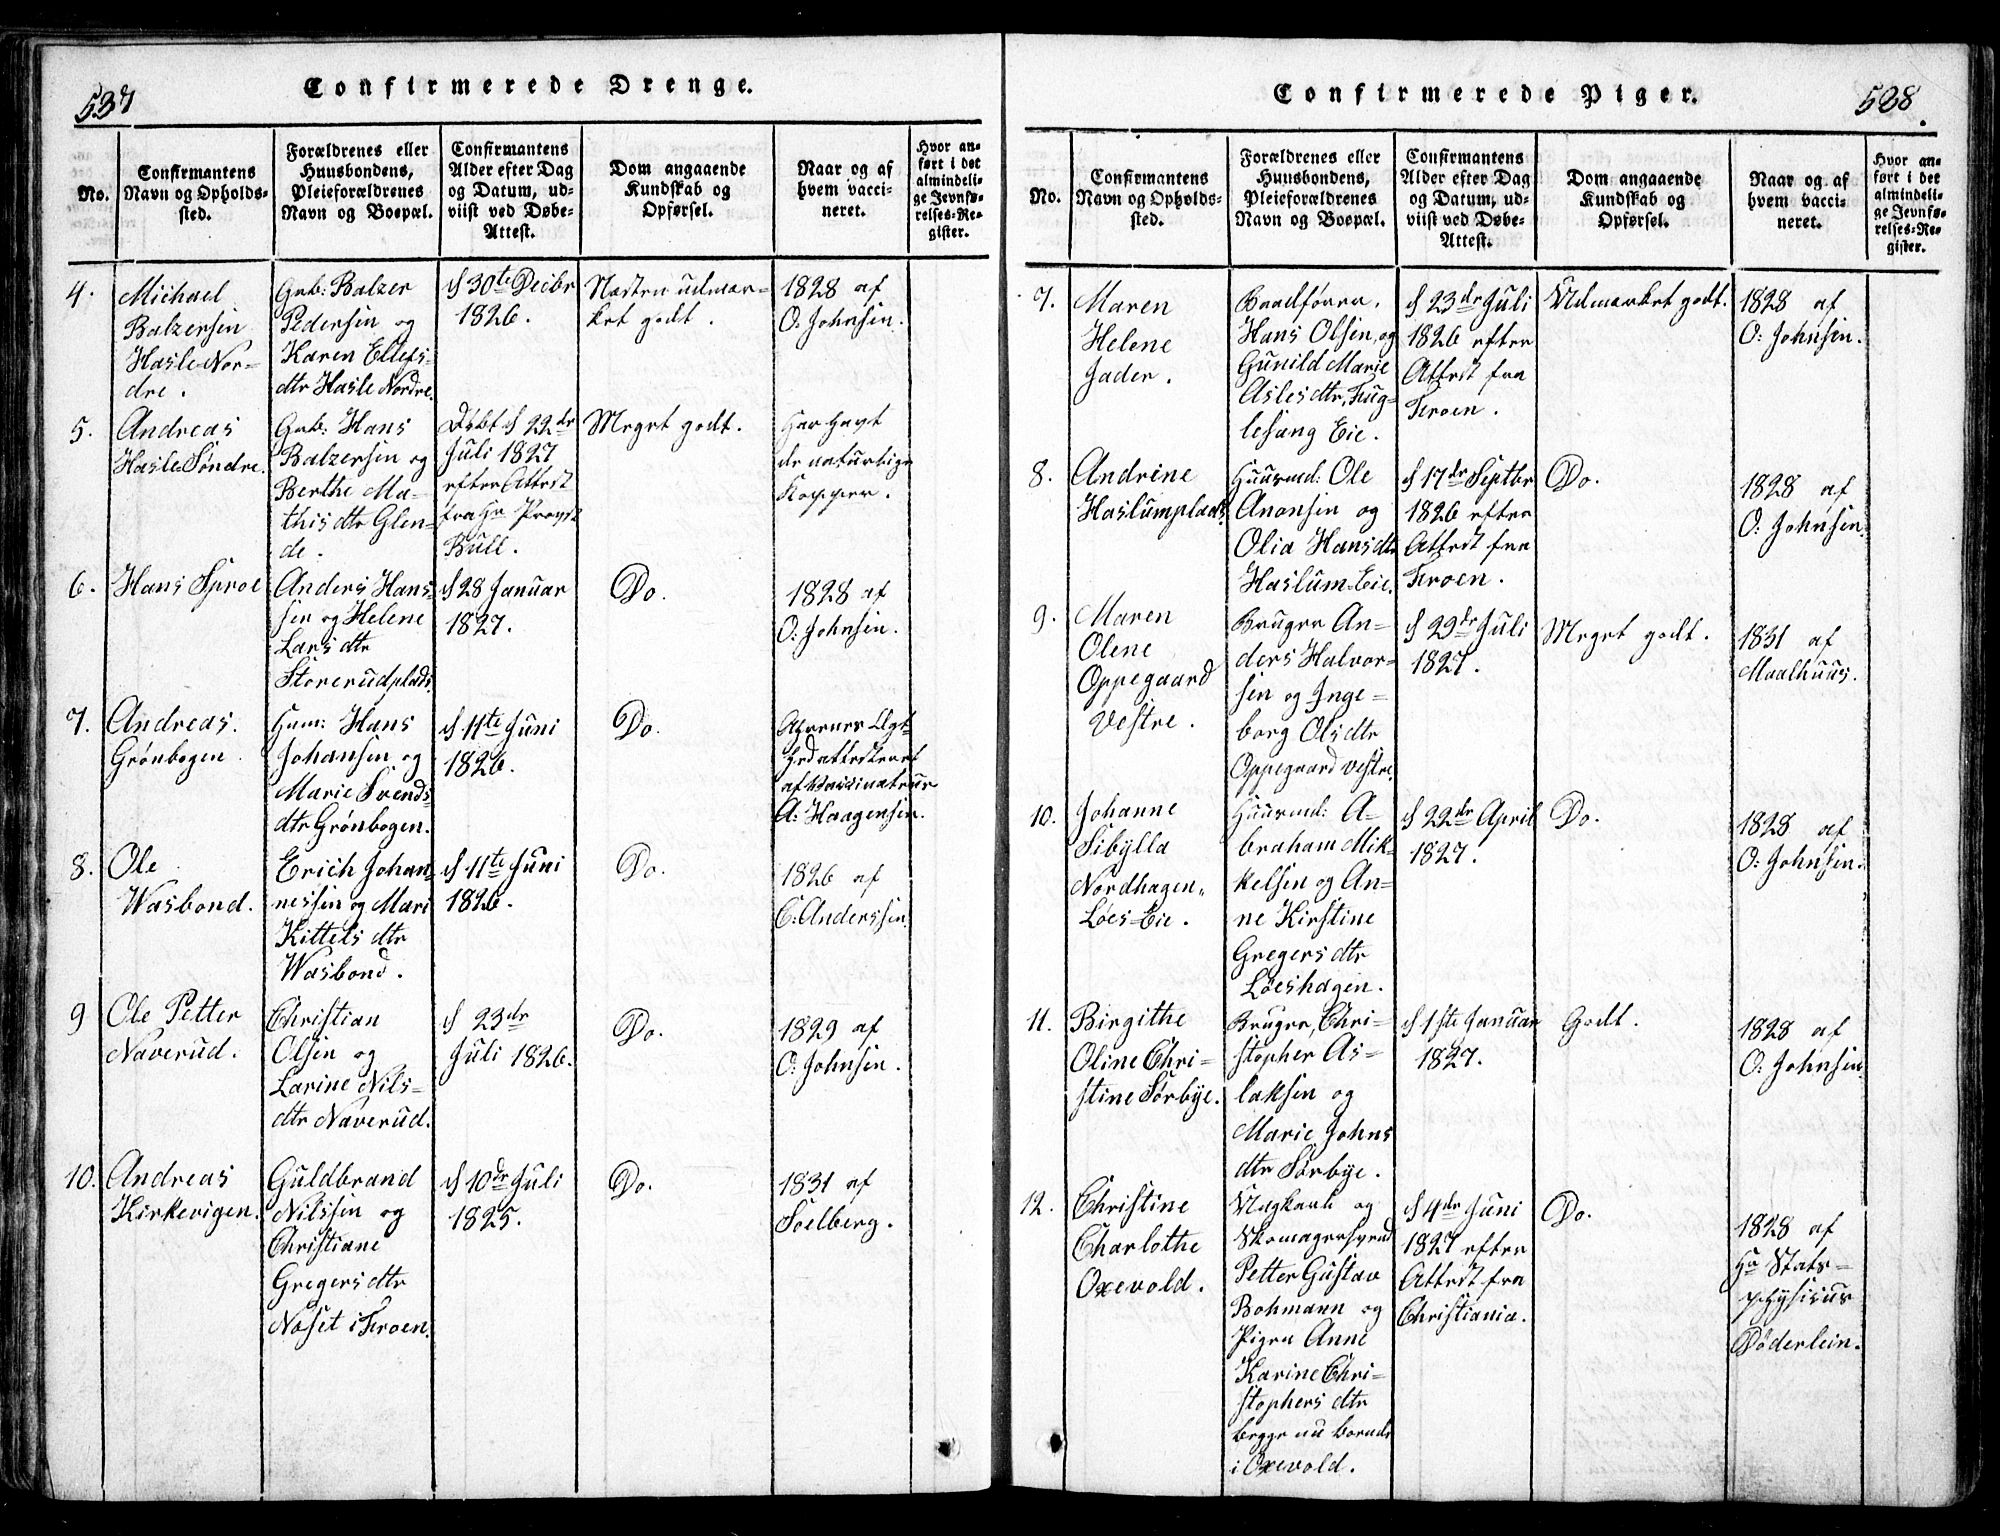 537
Confirmerede Drenge.
No.
Confirmantens
Navn og Opholds-
sted.
Forældrenes eller
Huusbondens,
Pleieforældrenes
Navn og Boepæl.
Confirmantens
Alder efter Dag
og Datum, ud-
viist ved Døbe-
Attest.
Dom angaaende
Kundskab og
Opførsel.
Naar og af
hvem vacci-
neret.
Hvor an-
ført i det
almindeli-
ge Jevnfø-
relses-Re-
gister.
4.
Michael
Balzersen
Hasle Nor-
dre.
Gub: Balzer
Pedersen og
Karen Ellefs-
dtr Hasle Nordre.
d 30te Decbr
1826.
Næsten udmær-
ket godt.
1828 af
O: Johnsen.
5.
Andreas
Hasle Søndre.
Gub: Hans
Balzersen og
Berthe Ma-
this dtr Glen-
de.
Døbt d 22dr
Juli 1827
efter Attest
fra Hr Provst
Bull.
Meget godt.
Har havt
de naturlige
Kopper.
6.
Hans Sproe
Anders Hans-
sen og Helene
Lars dtr
Storerudplads.
d 28 Januar
1827.
Do.
1828 af
O: Johnsen.
7.
Andreas
Grønbogen.
Hum: Hans
Johansen og
Marie Svends-
dtr Grønbogen.
d 11te Juni
1826.
Do.
af Vaccinateur
A: Haagensen.
8.
Ole
Wasbond.
Erich Johan-
nessen og Mari
Kittels dtr
Wasbond.
d 11te Juni
1826.
Do.
1826 af
C: Anderssen.
9
Ole Petter
Naverud.
Christian
Olsen og
Larine Nils-
dtr Naverud.
d 23dr
Juli 1826.
Do.
1829 af
O: Johnsen.
10.
Andreas
Kirkevigen.
Guldbrand
Nilssen og
Christiane
Gregers dtr
Noset i Froen.
d 10dr Juli
1825.
Do.
1831 af
Soelberg.
Confirmerede Piger.
528.
No.
Confirmantens
Navn og Opholds-
sted.
Forældrenes eller
Huusbondens,
Pleieforældrenes
Navn og Boepæl.
Confirmantens
Alder efter Dag
og Datum, ud-
viist ved Døbe-
Attest.
Dom angaaende
Kundskab og
Opførsel.
Naar og af
hvem vacci-
neret.
Hvor an-
ført i det
almindeli-
ge Jevnfø-
relses-Re-
gister.
7.
Maren
Helene
Jader.
Baadfører,
Hans Olsen, og
Gunild Marie
Asles dtr, Fug-
lesang Eie.
d 23dr Juli
1826 efter
Attest fra
Froen.
Udmærket godt.
1828 af
O: Johnsen.
8.
Andrine
Haslumplads.
Huusmd: Ole
Anonsen og
Olia Hans dtr
Haslum-Eie.
d 17dr Septbr
1826 efter
Attest fra
Froen.
Do.
1828 af
O: Johnsen.
9.
Maren
Olene
Oppegaard
Vestre.
Bruger An-
ders Halvor-
sen og Inge-
borg Ols dtr
Oppegaard vestre.
d 29dr Juli
1827.
Meget godt.
1831 af
Maalhuus.
10.
Johanne
Sibylla
Nordhagen,
Løes-Eie.
Huusmd: A-
braham Mik-
kelsen og An-
ne Kirstine
Gregers dtr
Løeshagen.
d 22dr April
1827.
Do.
1828 af
O: Johnsen.
11.
Birgithe
Oline Chri-
stine Sørbye.
Bruger, Chri-
stopher As-
laksen og
Marie Johns
dtr Sørbye.
d 1ste Januar
1827.
Godt.
1828 af
O: Johnsen.
12.
Christine
Charlothe
Oxevold.
Ungkarl og
Skomagersvend
Petter Gustav
Bohmann og
Pigen Anne
Karine Chri-
stophers dtr
begge nu boende
i Oxevold.
d 4dr Juni
1827 efter
Attest fra
Christiania.
Do.
1828 af
Hr Stats-
physicus
Døderlein.